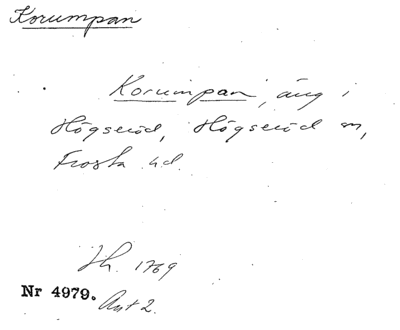 Korumpan
Korumpan, äng i
Högseröd, Högseröd sn,
Frosta hd.
Jh. 1769
Nr 4979. Ant 2.